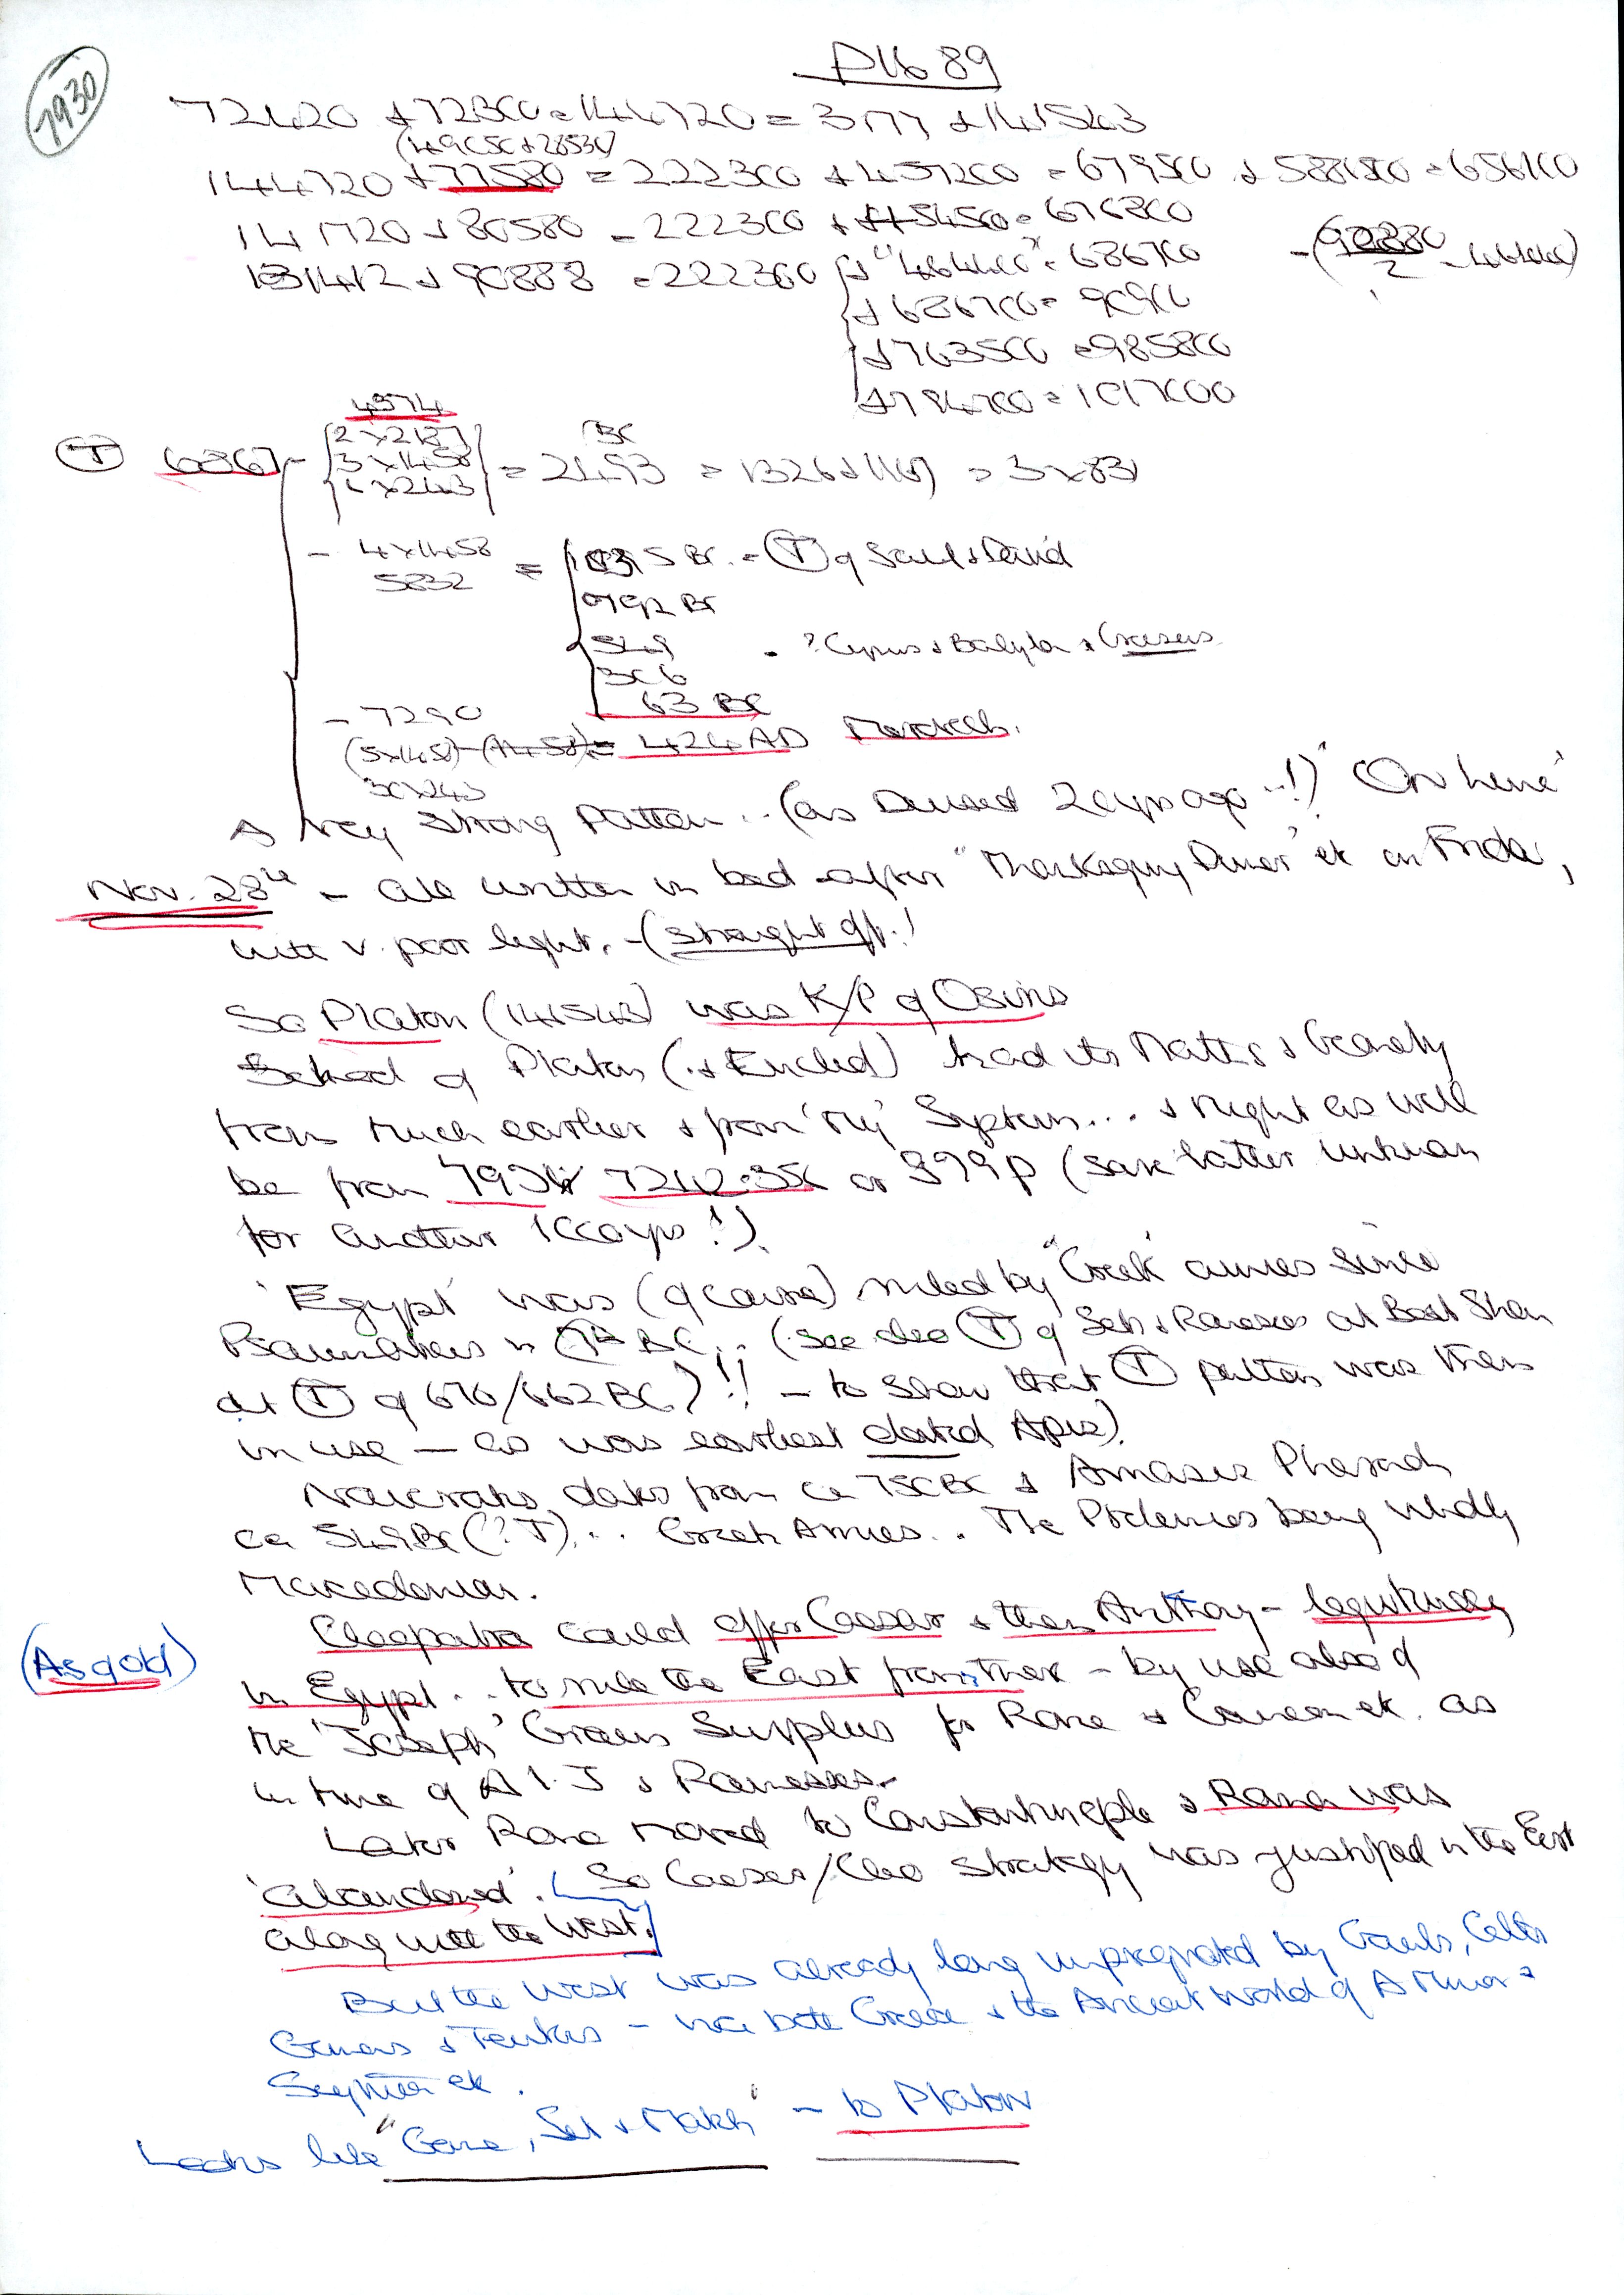 7930
P16 89
72420 + 72300 = 144720 = 3177 + 141543
(49050 + 28530)
144720 + 77580 = 222300 + 457200 = 679500 + 588 = 656100
141720 + 80580 = 222300 + 45450 = 676800
131412 + 90888 = 222300 + "46440" = 686700 -( 2 - 46440)
+ 686700 = 909
+ 763500 = 985800
+ 794700 = 1017000
4374
(T) 6867 - {2 x 2187 3 x 1458 x 243} = 2493 BC = 1326 + 1167 = 3 x 831
- 4 x 1458 5832 = 1035 BC. = (T) of Saul & David
792 BC
549 - ? Cyrus & Babylon & Croesus
306
63 BC
- 7290
(5x1458) - (1458) = 424 AD
30x243
A very strong pattern .. (as Devised 20 yrs ago - !)
Nov. 28th - all written in bed after "Thanksgiving Dinner" etc on Friday,
with v. poor light. - (straight off!)
So Platon (141543) was K/P of Osiris
School of Platon (& Euclid) had its Maths & Geometry
from much earlier & from 'My' System... & might as well
be from or 399 P (save latter unknown
for another 1000 yrs!).
'Egypt' was (of course) ruled by "Greek" armies since
Psammaticus in 7th BC .. (see also (T) of Seti & Rameses at Beth Shan
at (T) of 676/662 BC)!! - to show that (T) pattern was then
in use - as was earliest dated Apis).
Naucratis dates from ca 750 BC & Amasis Pharaoh
ca 549 BC (? T)... Greek Armies.. The Ptolemies being wholly
Macedonian.
Cleopatra could offer Caesar & then Anthony - legitimacy
(As gold)
in Egypt.. to rule the East from there - by use also of
the 'Joseph' Grain Surplus for Rome & etc. as
in time of A 1. J & Ramesses.
Later Rome moved to Constantinople & Rome was
'abandoned'. So Caesar/Cleo strategy was justified in the East
along with the West.
But the West was already long impregnated by Gauls, Celts
Germans & - via both Greece & the Ancient World of A Minor &
Scythia etc.
Looks like "Game, Set & Match" - to Platon